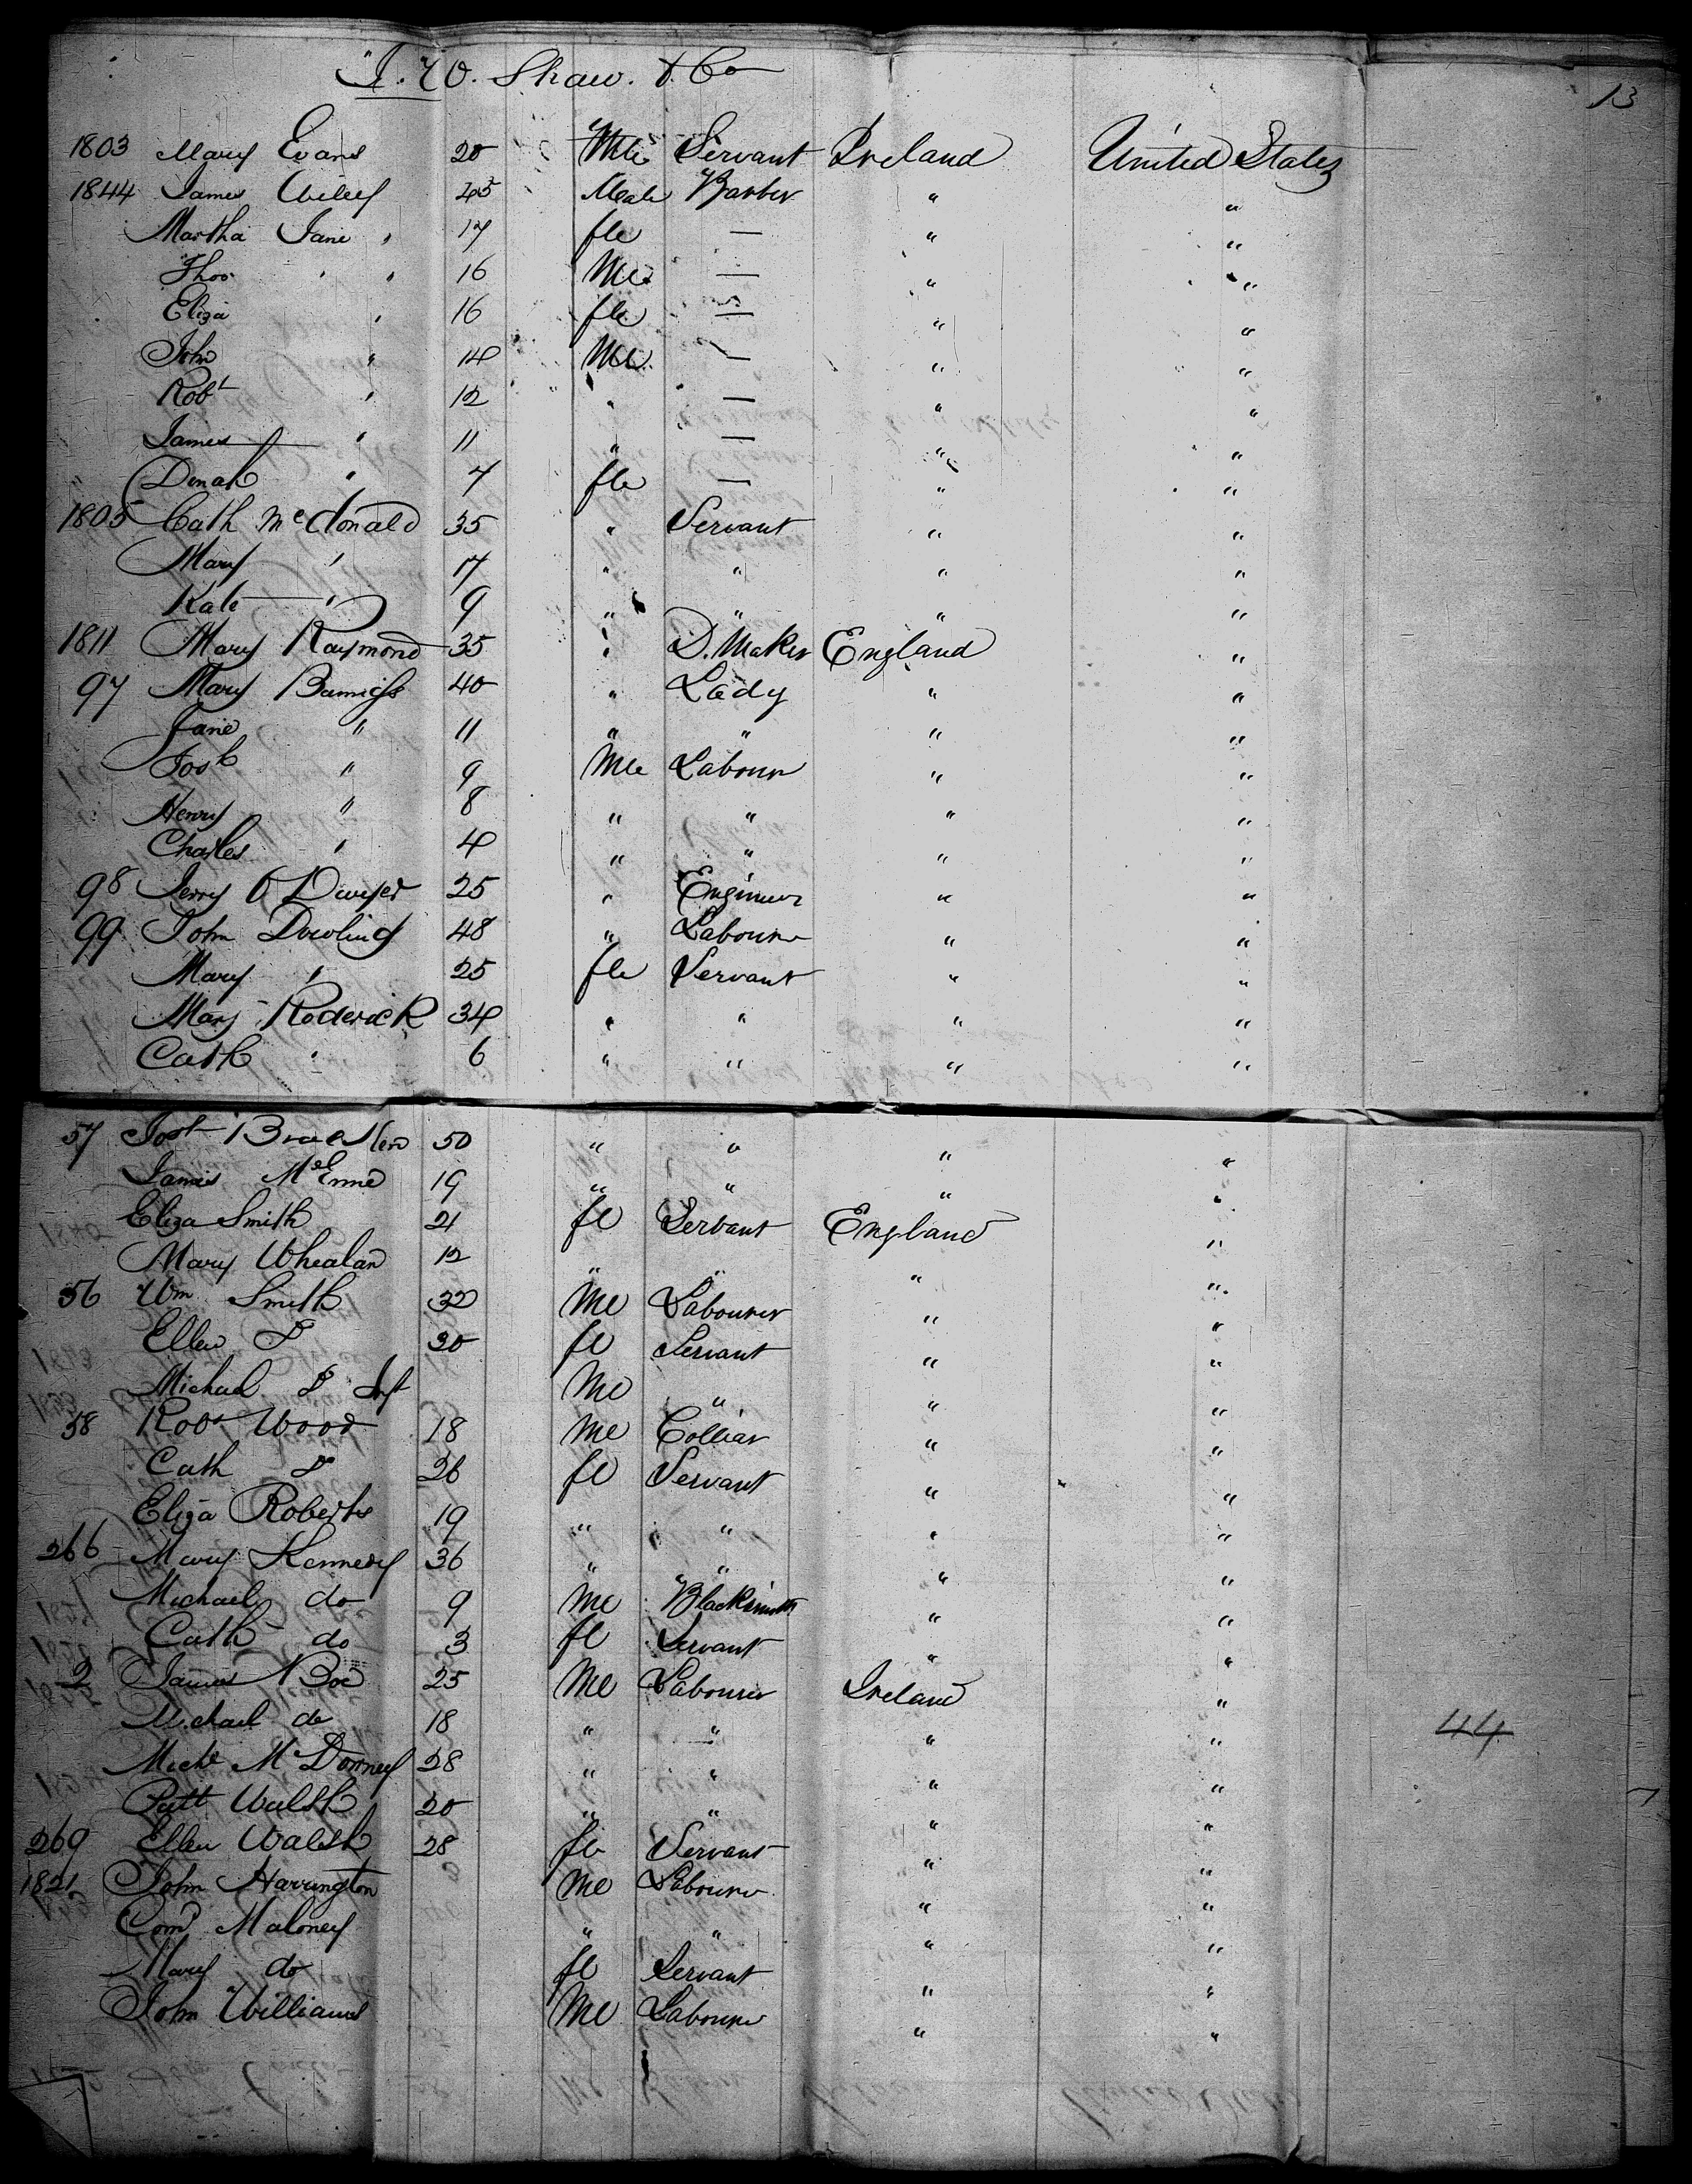 Shaw. & Co
13
1803 Mary Evans 20 Mle Servant Ireland United States
1844 James Wiley 45 Male Barber " "
Martha Jane " 17 fle — " "
Thos " " 16 Mle — " "
Eliza " 16 fle — " "
John " 14 Mle — " "
Robt " 12 " — " "
James " 11 " — " "
Dinah " 7 fle — " "
1805 Cath McDonald 35 " Servant " "
Mary " 17 " " " "
Kate " 9 " " " "
1811 Mary Raymond 35 " D. Maker England "
97 Mary 40 " Lady " "
Jane " 11 " " " "
Josh " 9 Mle Labour " "
Henry " 8 " " " "
Charles " 4 " " " "
98 Jerry O Dwyer 25 " Engineer " "
99 John Dowling 48 " Labourer " "
Mary " 25 fle Servant " "
Mary Roderick 34 " " " "
Cath " 6 " " " "
57 50 " " " "
James 19 " " " "
Eliza Smith 21 fe Servant England "
Mary Whealan 12 " " " "
56 Wm Smith 32 Me Labourer " "
Ellen Do 30 fe Servant " "
Michael Do Inft Me " " "
58 Robt Wood 18 Me Collier " "
Cath Do 26 fe Servant " "
Eliza Roberts 19 " " " "
266 Mary Kennedy 36 " " " "
Michael do 9 Me Blacksmith " "
Cath do 3 fe Servant " "
2 James 25 Me Labourer Ireland "
Michael do 18 " " " "
44
28 " " " "
Patt Walsh 20 " " " "
269 Ellen Walsh 28 fe Servant " "
1821 John Harrington Me Labourer " "
Maloney " " " "
Mary do fe Servant " "
John Williams Me Labourer " "